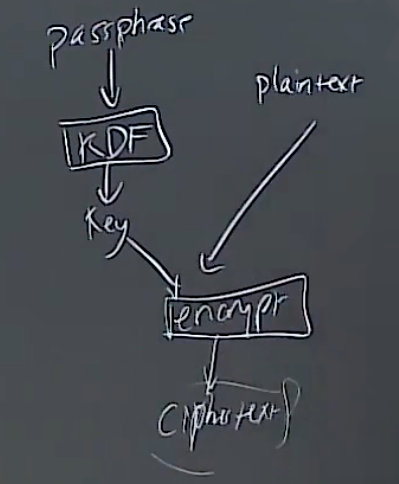 passphase
plaintext
KDF
Key
encrypt
Ciphertext